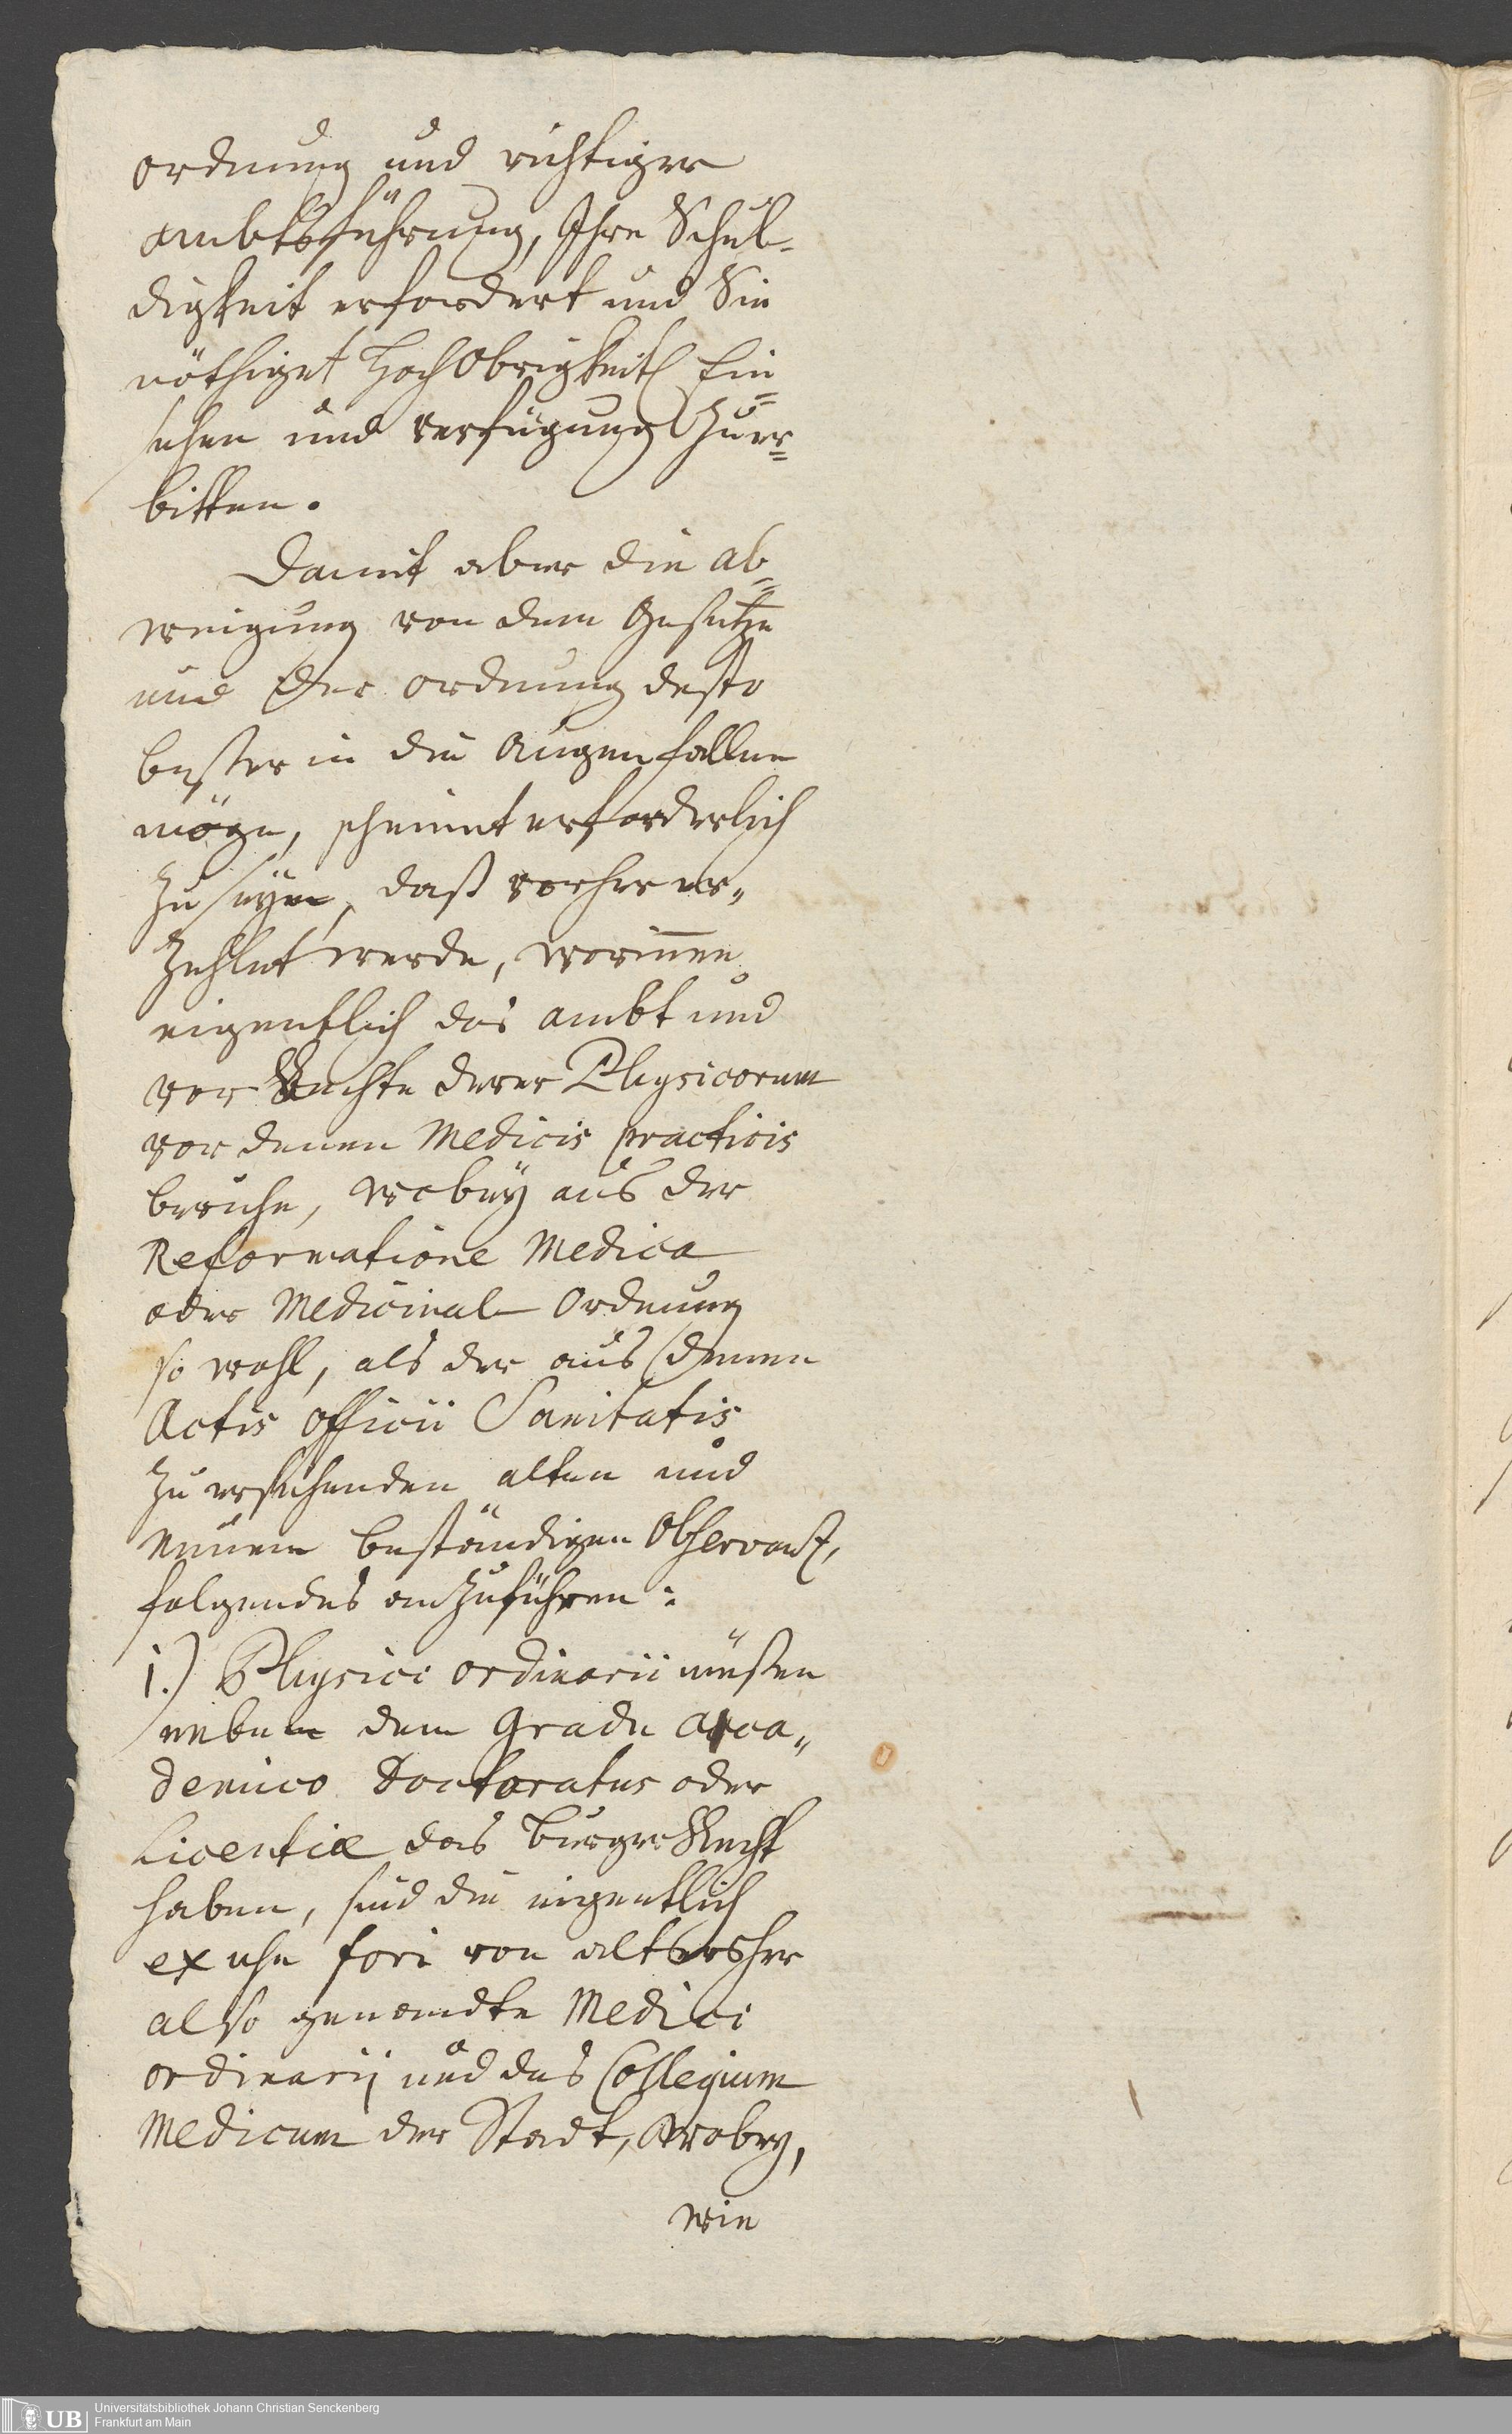 ordnung und richtiger
ambtsführung, Ihre Schul-
digkeit erfordert und Sie
nöthiget HochObrigkeitl Ein=
sehen und verfügung Zuer=
bitten.
Damit aber die ab=
weigung von dem Gesetze
und der ordnung desto
beßer in die Augen fallen
möge, scheinet erforderlich
zu seyn, daß vorher er„
zehlet werde, worinnen
eigentlich das ambt und
vor Rechte derer Physicorum
vor denen Medicis practicis
beruhe, wobey aus der
Reformatione Medica
oder Medicinal Ordnung
so wohl, als der aus denen
Actis officii Sanitatis
zu ersehenden alten und
neuen beständigen Observantz,
folgendes anzuführen:
1.) Physici ordinarii müßen
neben dem Gradu Aca„
demico Doctoratus oder
Licentiæ das burger Recht
haben, sind die eigentlich
ex usu fori von altersher
also genandte Medici
ordinarij und das Collegium
Medicum der Stadt, wobey,
wie
UB
Universitätsbibliothek Johann Christian Senckenberg
Frankfurt am Main